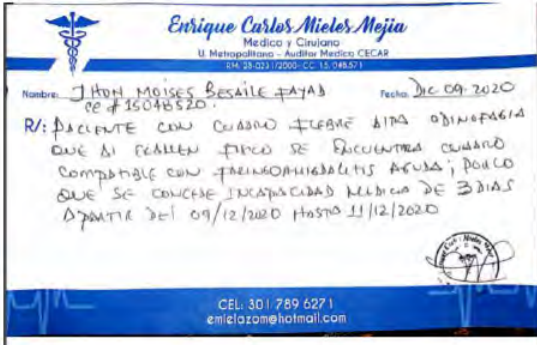 Enrique Carlos Mieles Mejia
Medico y Cirujano
U. Metropolitana - Auditor Medico CECAR
RM: 23-0231/2000- CC: 15.048.571
Nombre: JHON MOISES BESAILE FAYAD Fecha: Dic 09-2020
CC # 15048520.
R/: PACIENTE CON CUADRO FIEBRE ALTA ODINOFAGIA
QUE AL EXAMEN FISICO SE ENCUENTRA CUADRO
COMPATIBLE CON FARINGOAMIGDALITIS AGUDA; POR LO
QUE SE CONCEDE INCAPACIDAD MEDICA DE 3 DIAS
A PARTIR DEL 09/12/2020 HASTA 11/12/2020
CEL: 301 789 6271
emielazom@hotmail.com